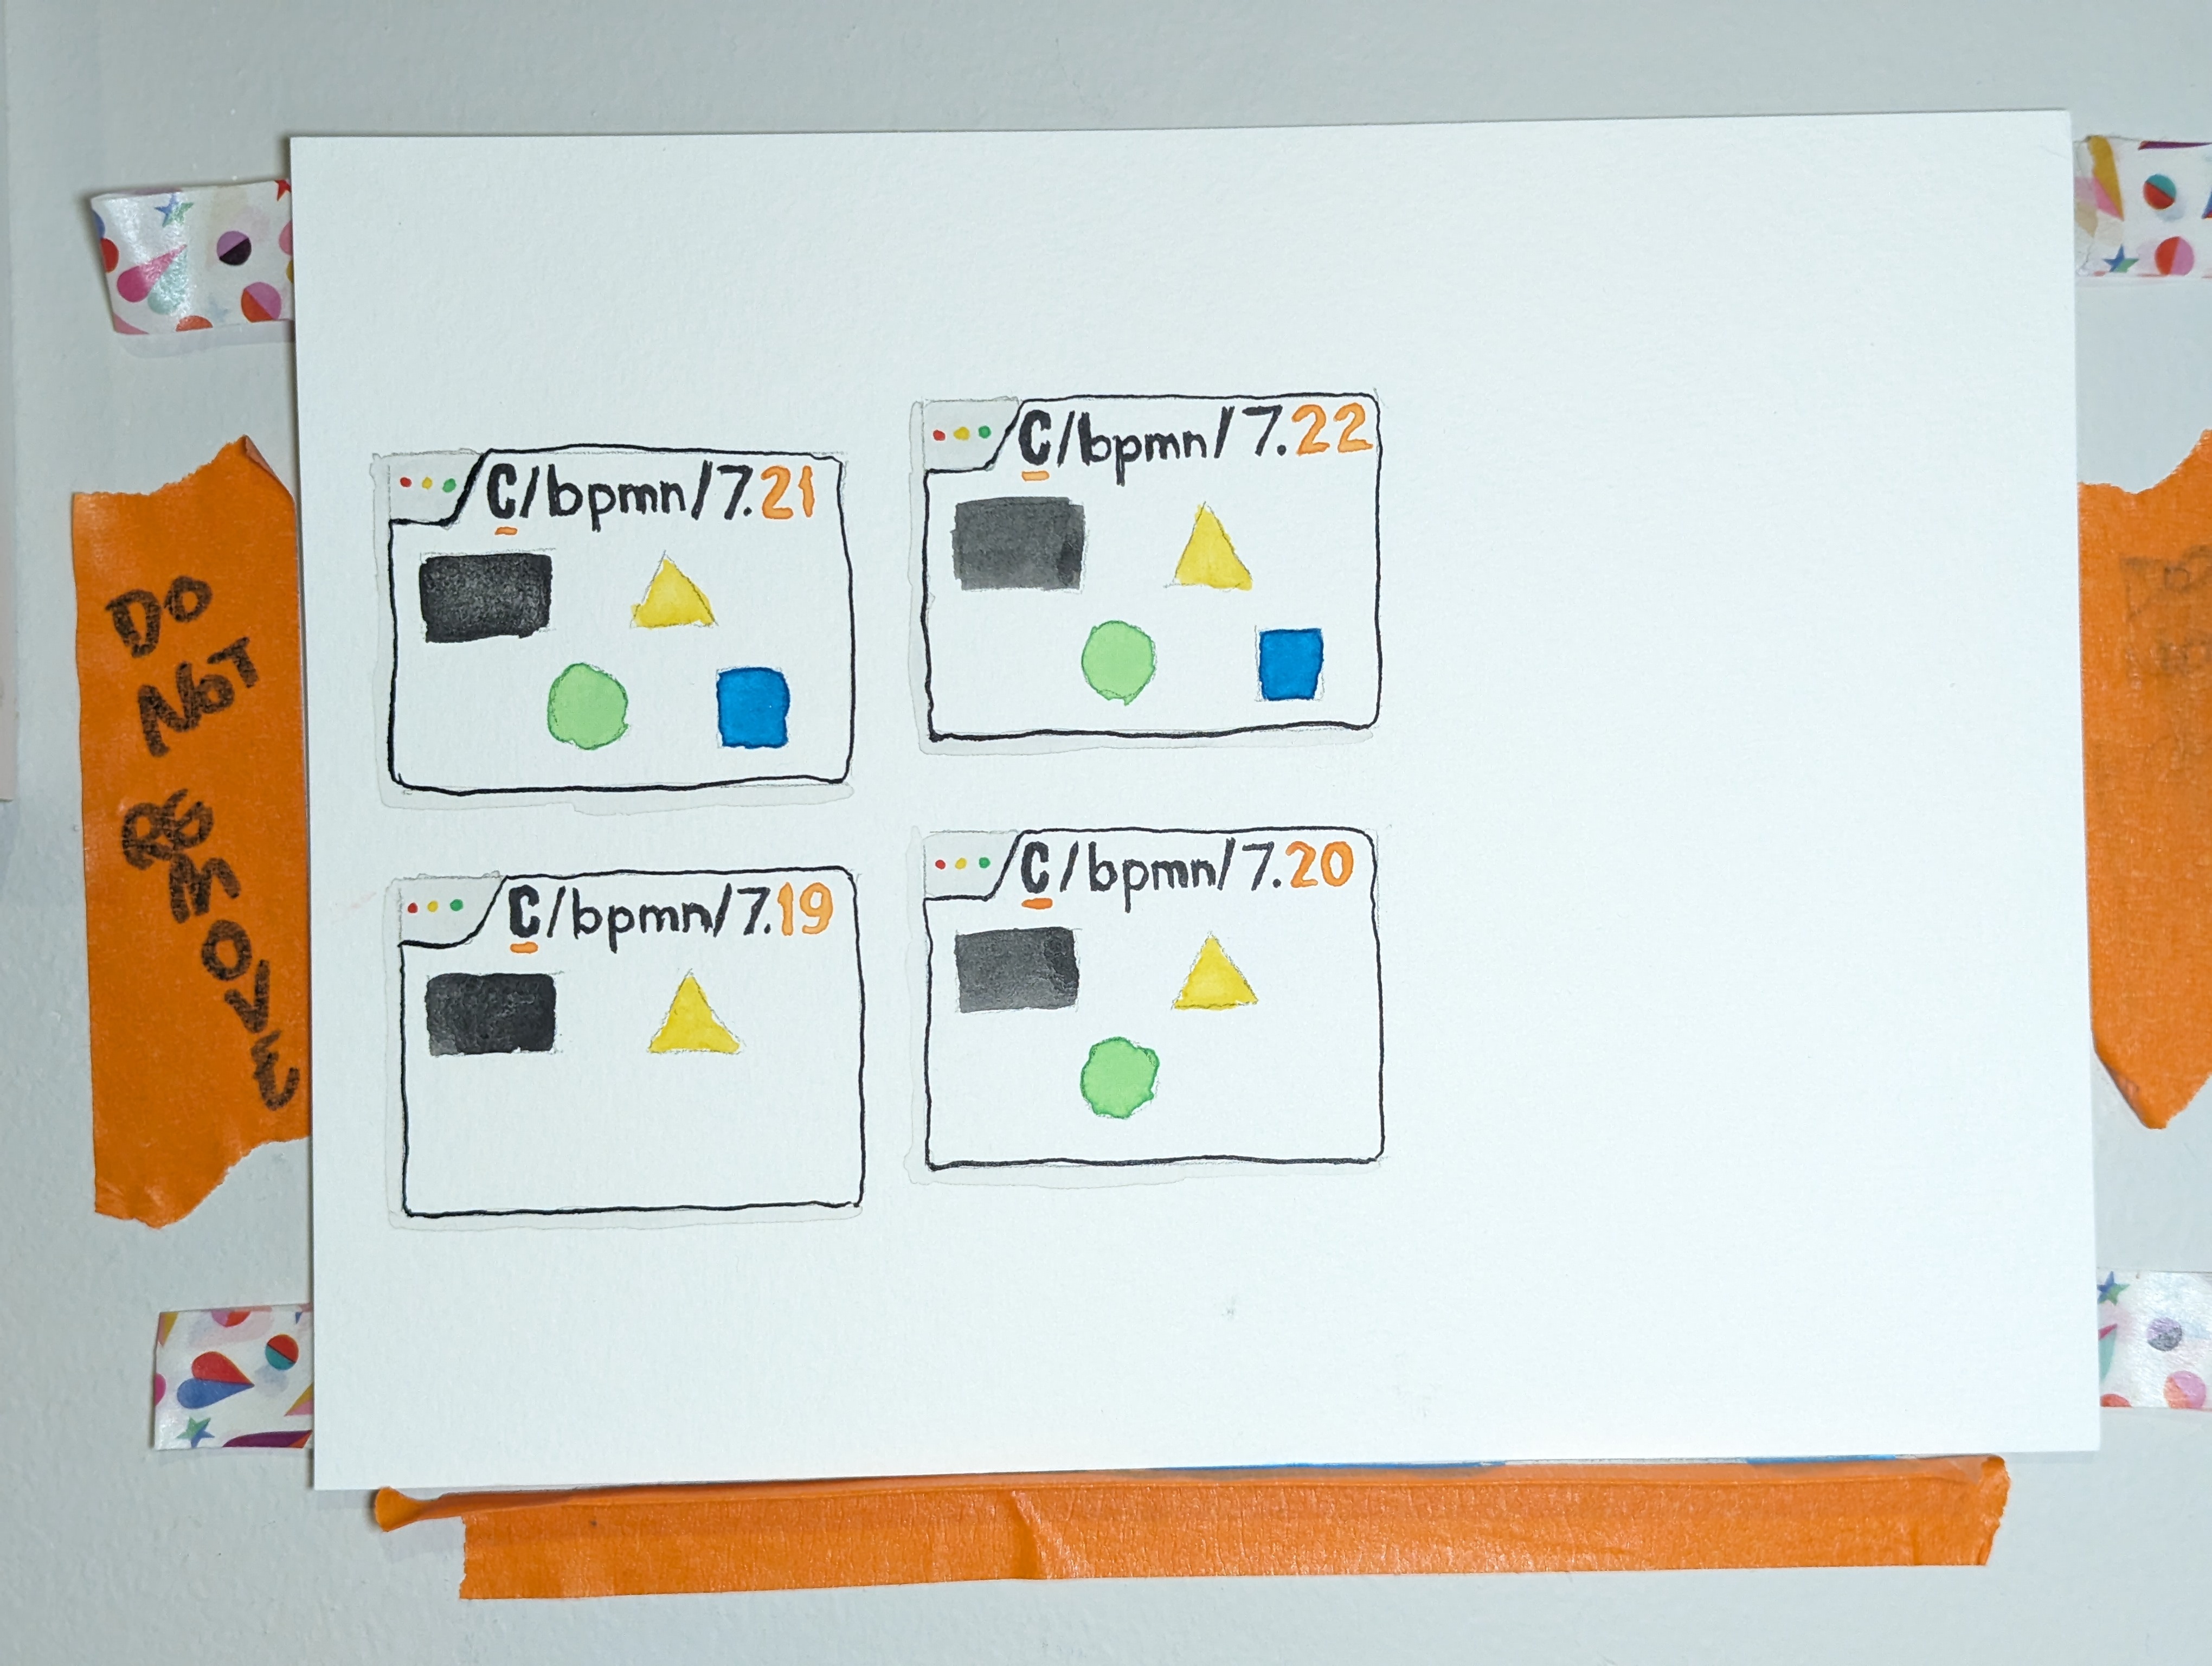 DO
NOT
REMOVE
C/bpmn/7.21
C/bpmn/7.22
C/bpmn/7.19
C/bpmn/7.20